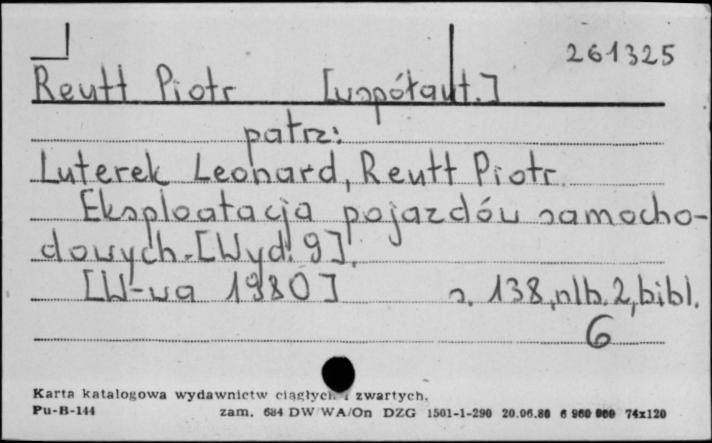 261325
Reutt Piotr [współaut.]
patrz:
Luterek Leonard, Reutt Piotr
Eksploatacja pojazdów samocho-
dowych. [Wyd. 9].
[W-wa 1980] s. 138, nlb. 2, bibl.
6
Karta katalogowa wydawnictw ciągłych i zwartych.
Pu-B-144 zam. 684 DW WA/On DZG 1501-1-290 20.06.80 6 960 000 74x120